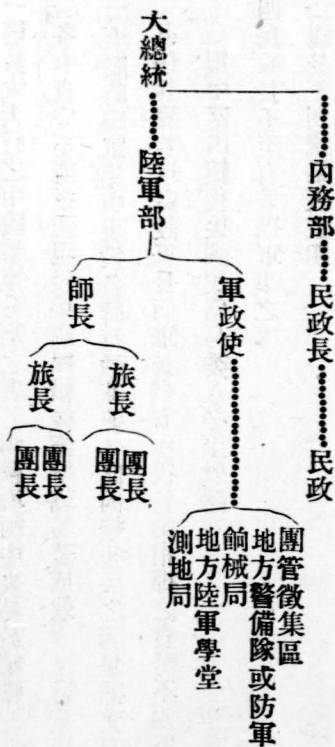 大總統
內務部
民政長
民政
陸軍部
軍政使
團管徵集區
地方警備隊或防軍
餉械局
地方陸軍學堂
測地局
師長
旅長
團長
團長
旅長
團長
團長